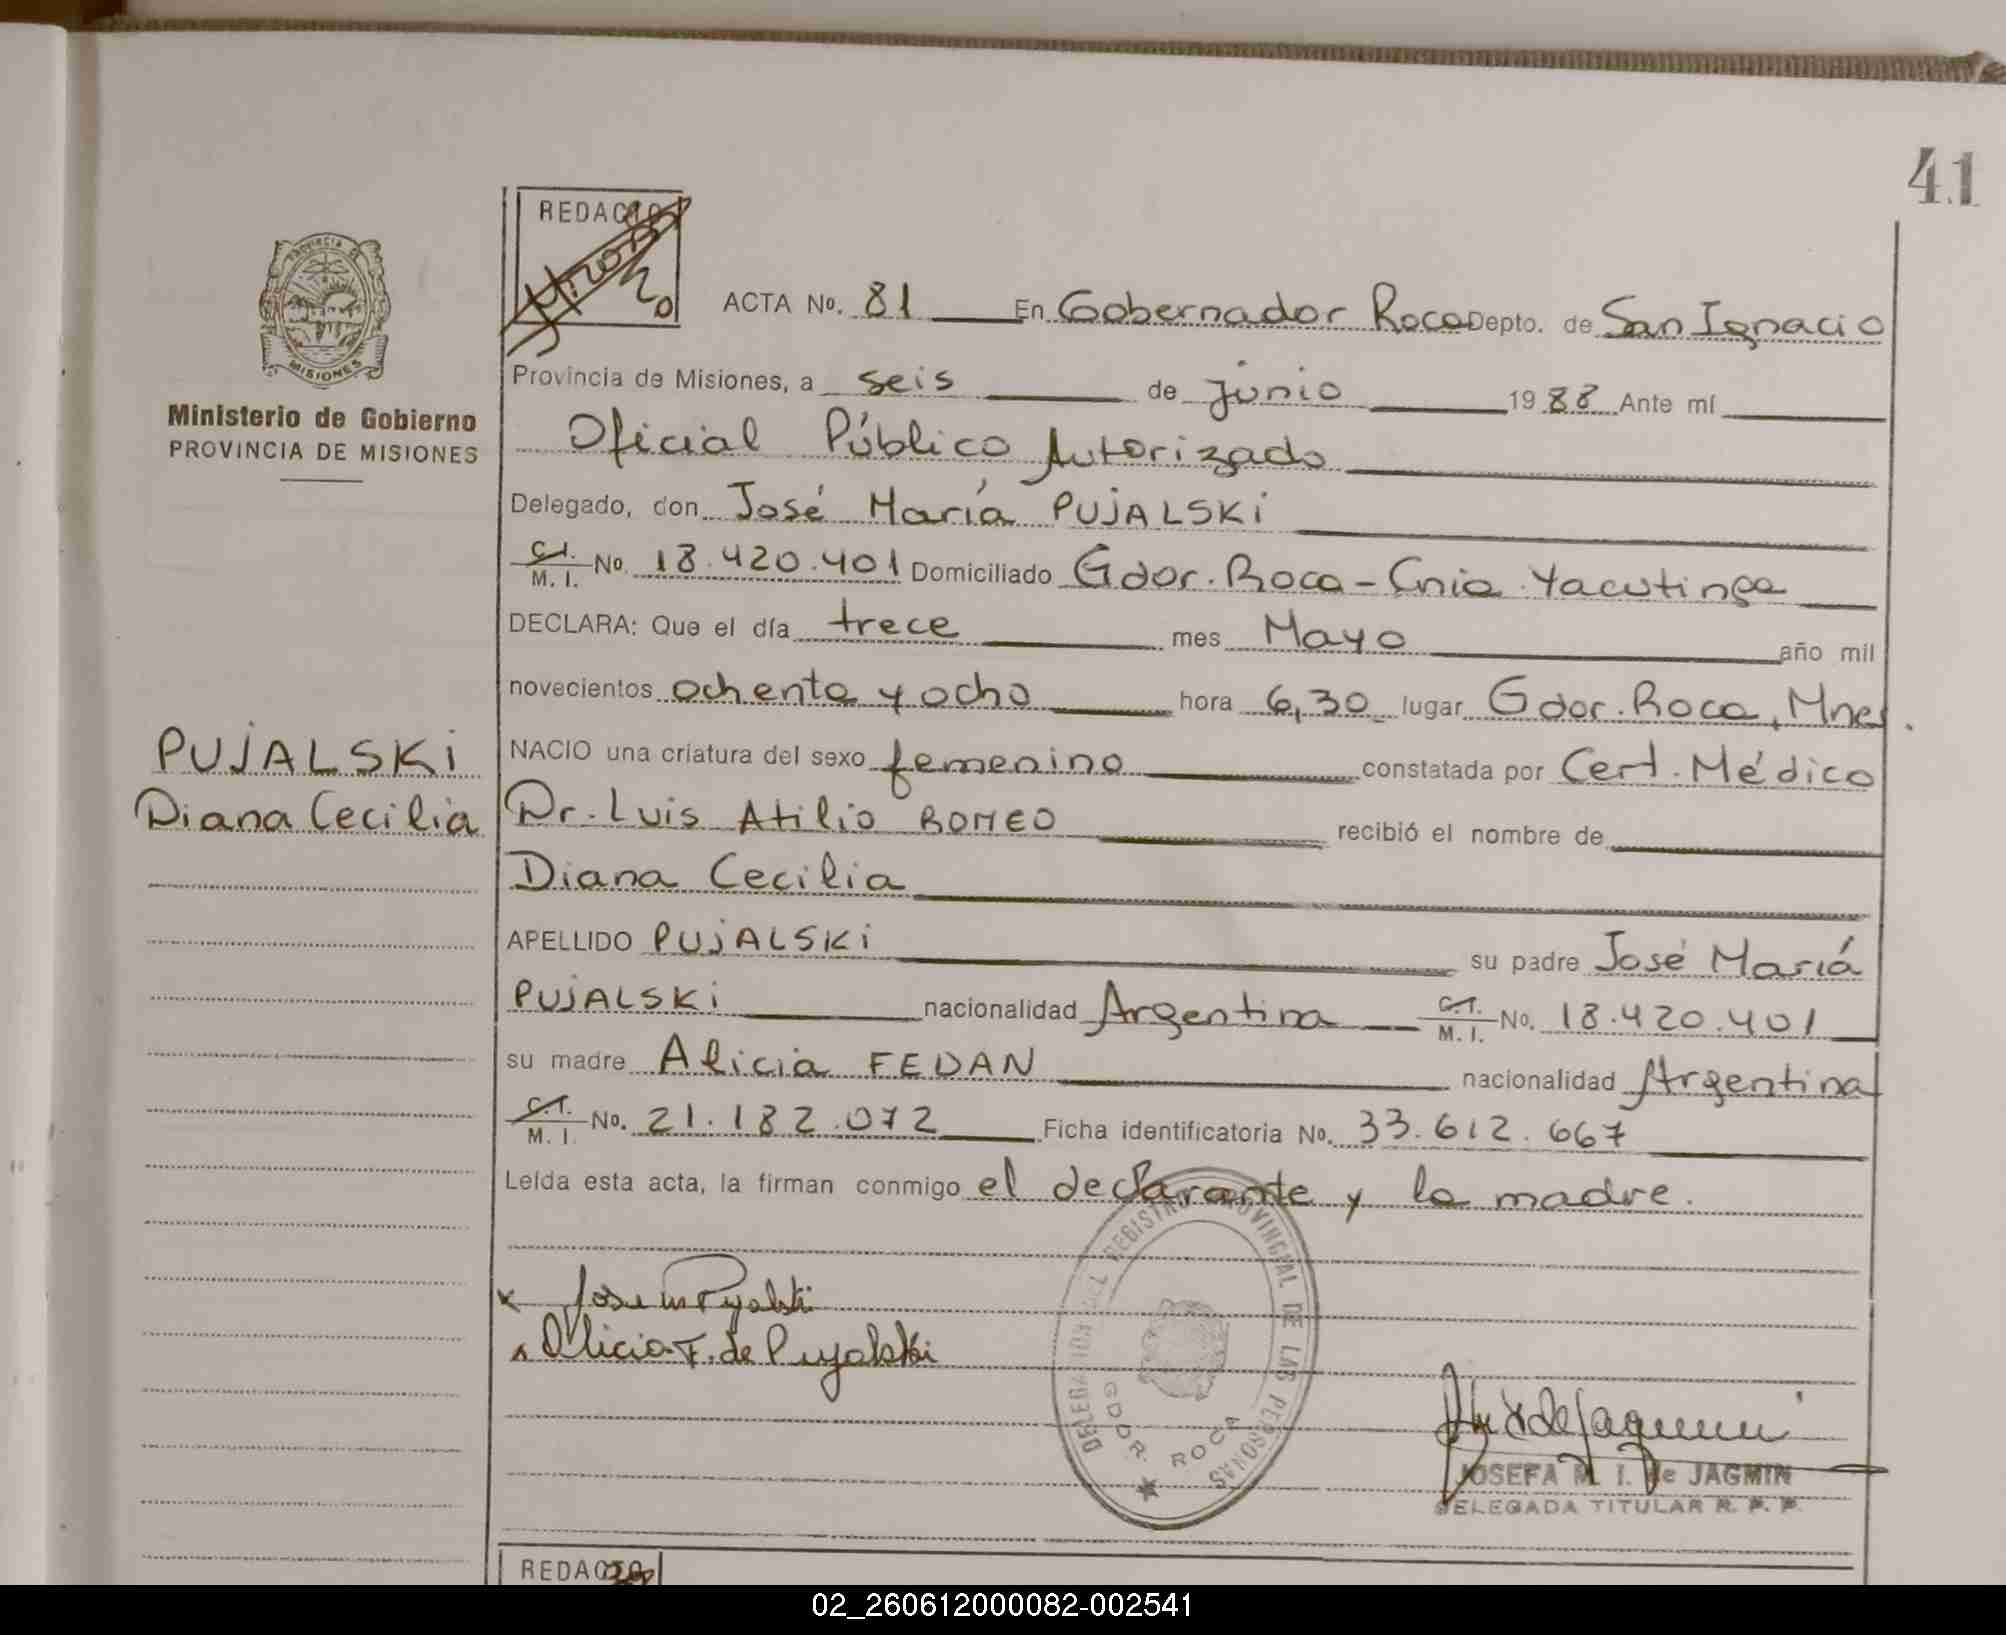 41
REDACTO
ACTA No. 81 En Gobernador Roca Depto. de San Ignacio
Provincia de Misiones, a seis de junio 1988 Ante mí
Oficial Público Autorizado
Delegado, don José María PUJALSKi
C.I. M. I. No. 18.420.401 Domiciliado Gdor. Roca - Cnia. Yacutinga
DECLARA: Que el día trece mes Mayo año mil
novecientos ochenta y ocho hora 6,30 lugar Gdor. Roca, Mnes.
NACIO una criatura del sexo femenino constatada por Cert. Médico
Dr. Luis Atilio ROMEO recibió el nombre de
Diana Cecilia
APELLIDO PUJALSKi su padre José María
PUJALSKi nacionalidad Argentina C.I. M. I. No. 18.420.401
su madre Alicia FEDAN nacionalidad Argentina
C.I. M. I. No. 21.182.072 Ficha identificatoria No. 33.612.667
Leída esta acta, la firman conmigo el declarante y la madre.
Jose M Pujalski
Alicia F. de Pujalski
DELEGACION DEL REGISTRO PROVINCIAL DE LAS PERSONAS
GDOR. ROCA
JOSEFA M. I. de JAGMIN
DELEGADA TITULAR R. P. P.
PROVINCIA DE
MISIONES
Ministerio de Gobierno
PROVINCIA DE MISIONES
PUJALSKi
Diana Cecilia
REDACTO
02_260612000082-002541